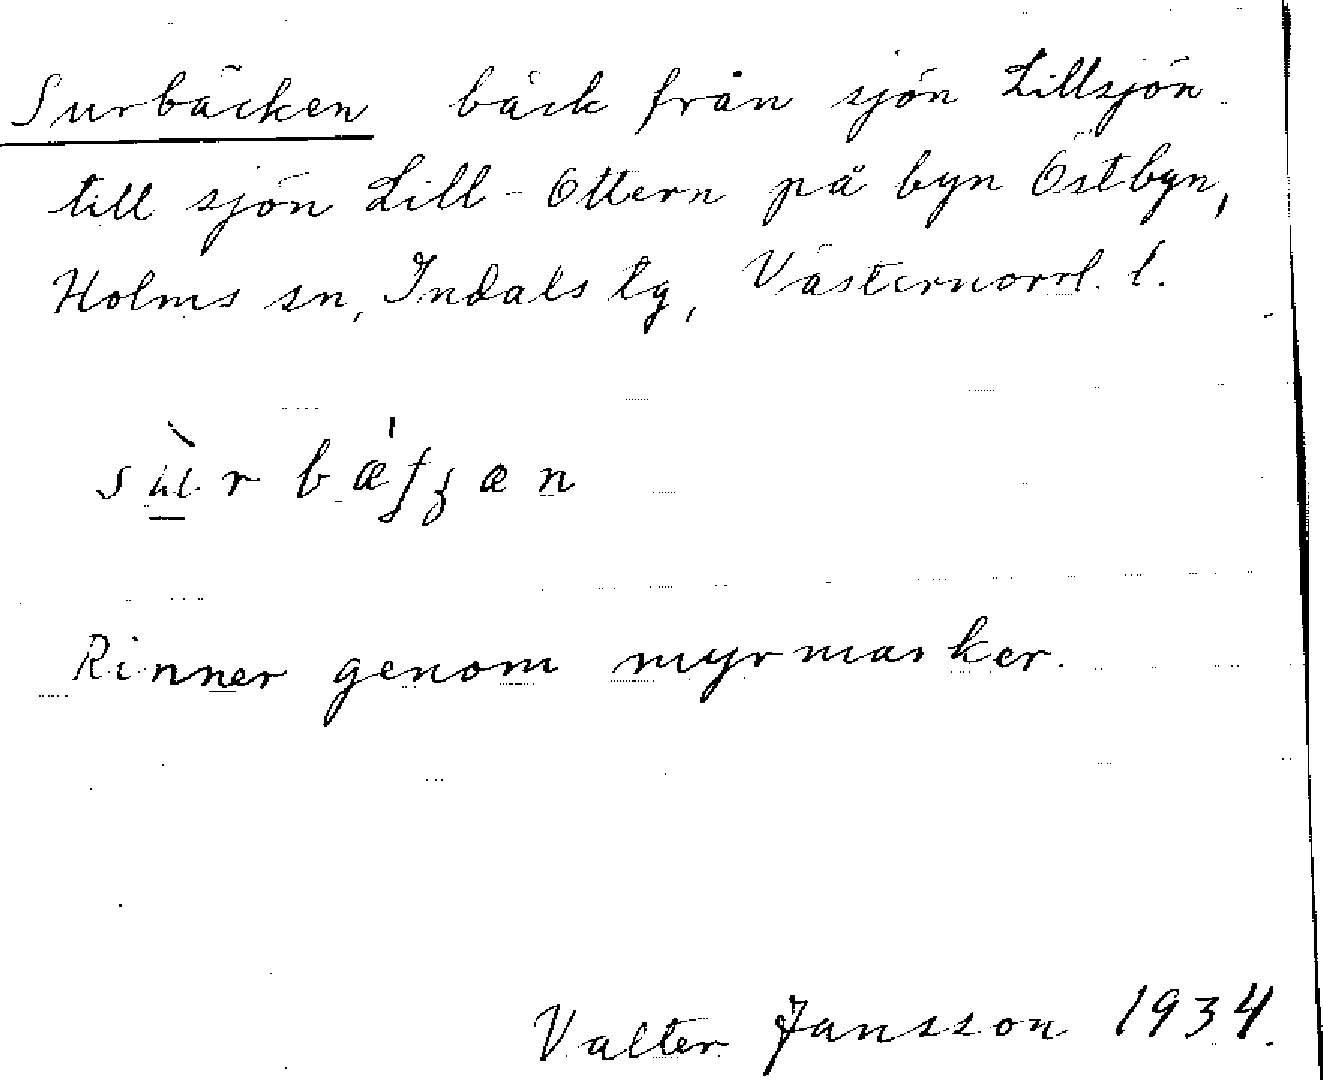 Surbäcken bäck från sjön Lillsjön
till sjön Lill-Ottern på byn Östbyn,
Holms sn, Indals tg, Västernorrl. l.
Rinner genom myrmarker.
Valter Jansson 1934.